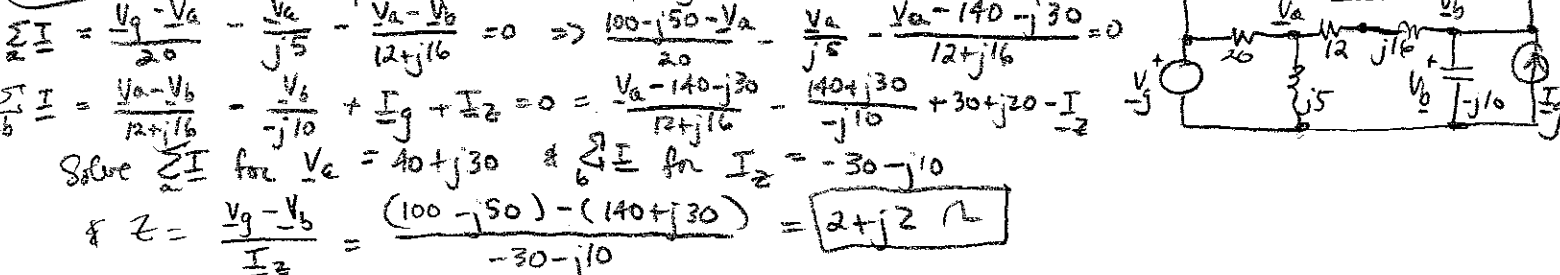 Σa I = (Vg - Va)/20 - Va/j5 - (Va - Vb)/(12+j16) = 0 => (100-j50-Va)/20 - Va/j5 - (Va-140-j30)/(12+j16) = 0
Σb I = (Va-Vb)/(12+j16) - Vb/(-j10) + Ig + Iz = 0 = (Va-140-j30)/(12+j16) - (140+j30)/(-j10) + 30+j20 - Iz
Solve Σa I for Va = 40+j30 & Σb I for Iz = -30-j10
& Z = (Vg-Vb)/Iz = ((100-j50)-(140+j30))/(-30-j10) = 2+j2 Ω
Va Vb
20 12 j16
+ Vg j5 + Vb -j10 Ig